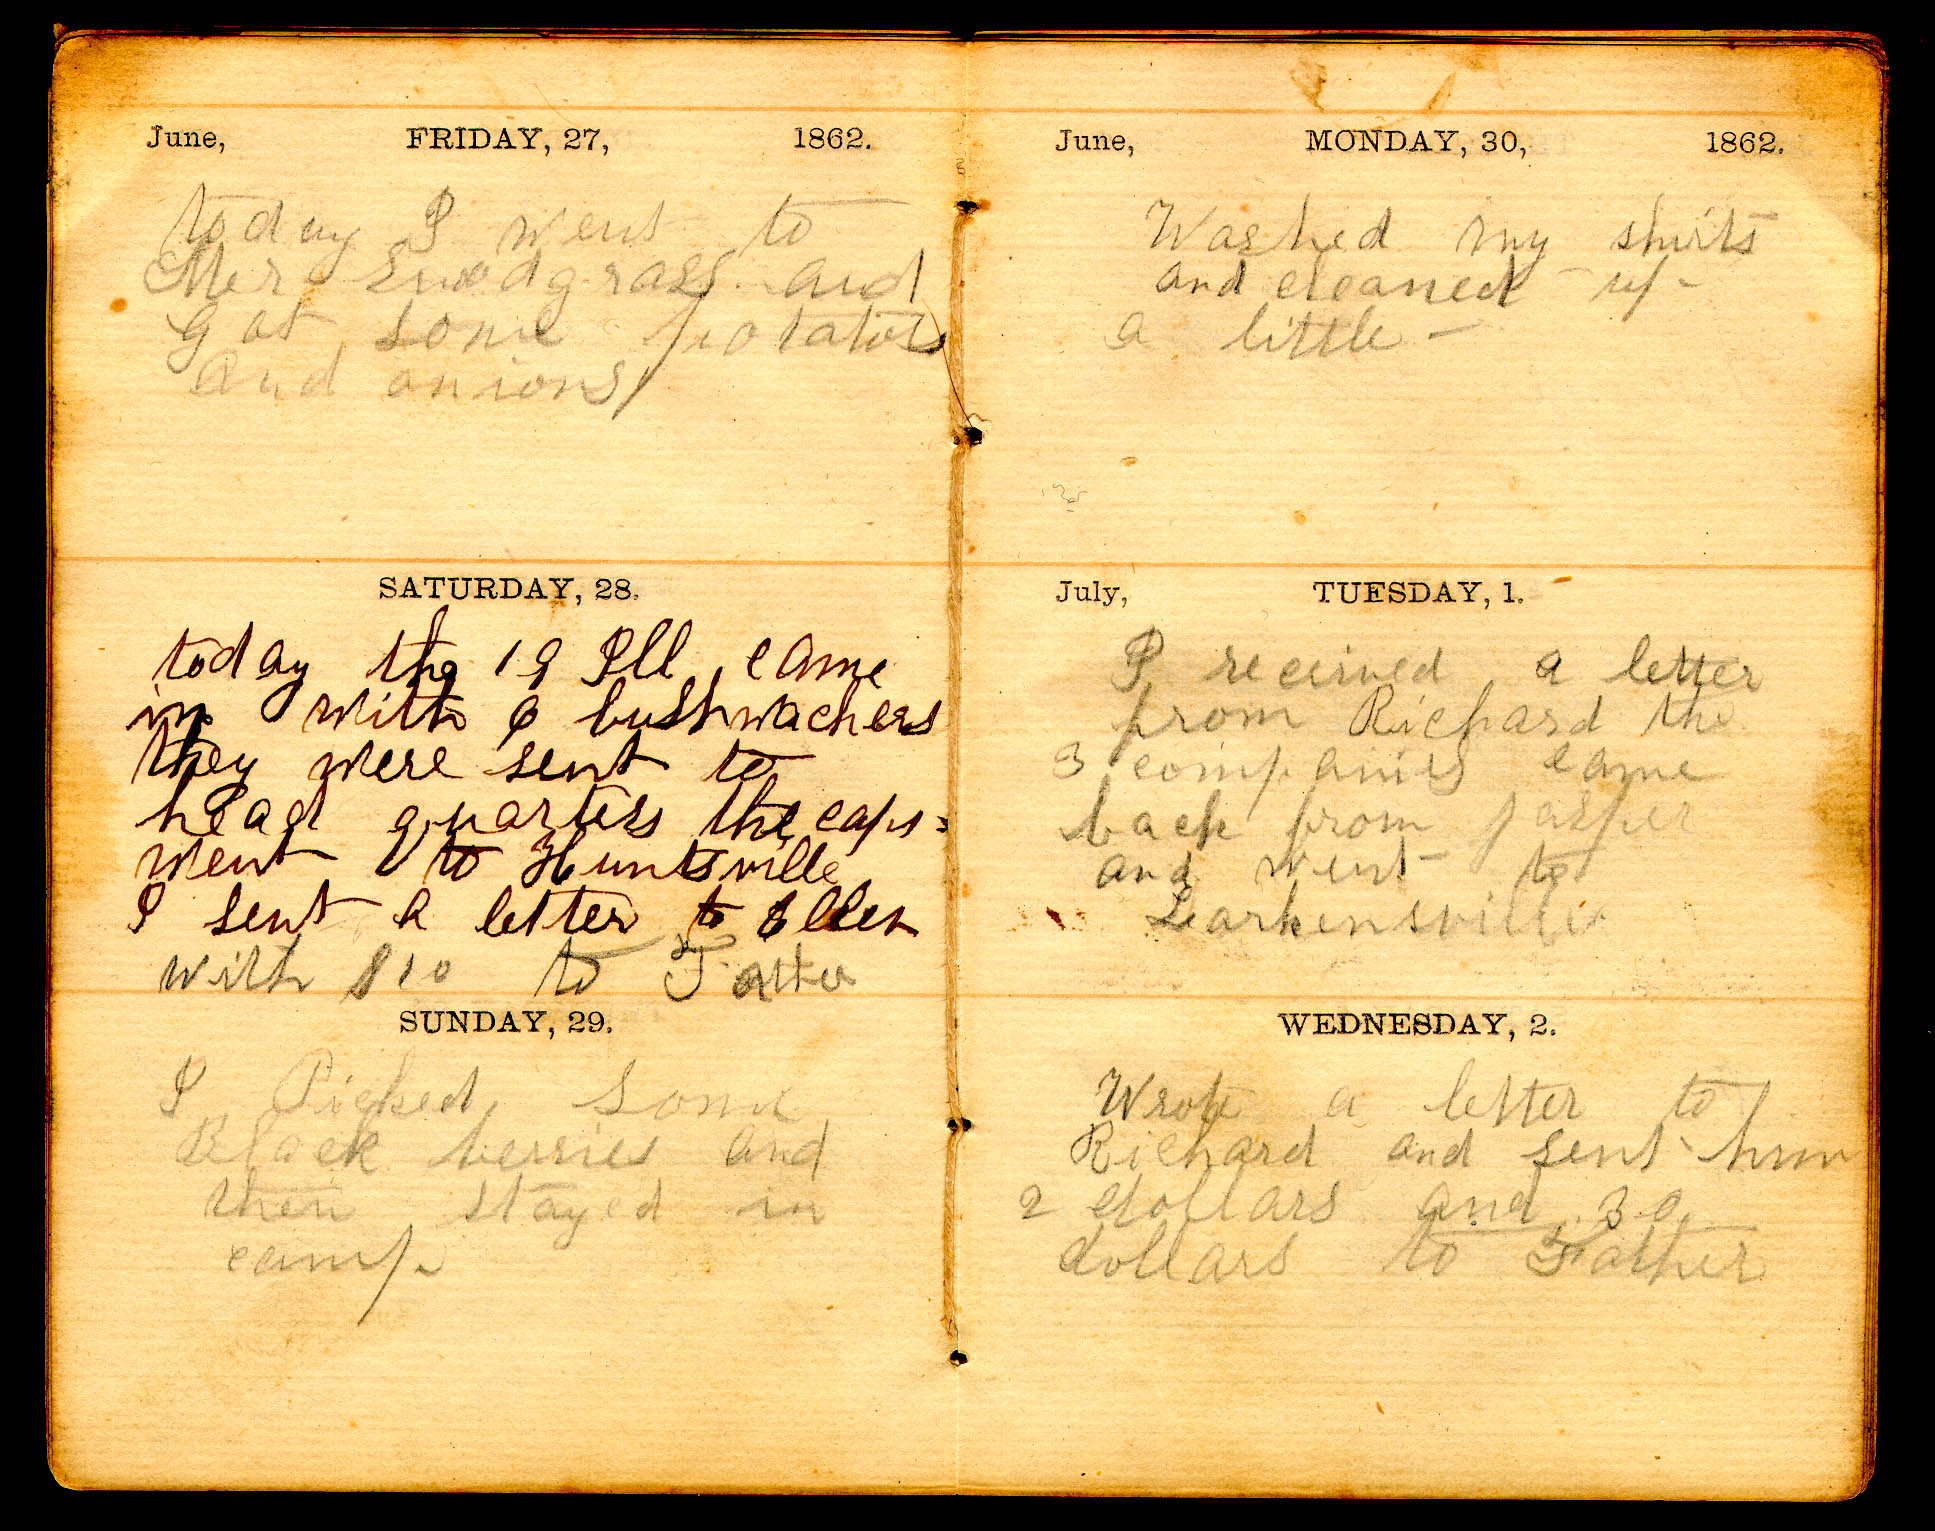 June, FRIDAY, 27, 1862.
today I went to
Mer Snodgrass and
got some potatoes
and onions
SATURDAY, 28.
today the 19 Ill came
in with 6 bushwachers
they were sent to
head quarters the caps
went to Huntsville
I sent a letter to Ellen
with $10 to
SUNDAY, 29.
I Picked some
Black berries and
then stayed in
camp
June, MONDAY, 30, 1862.
Washed my shirts
and cleaned up
a little
July, TUESDAY, 1.
I received a letter
from Richard the
3 companies came
back from jasper
and went to
Larkensville
WEDNESDAY, 2.
Wrote a letter to
Richard and sent him
2 dollars and 30
dollars to Father